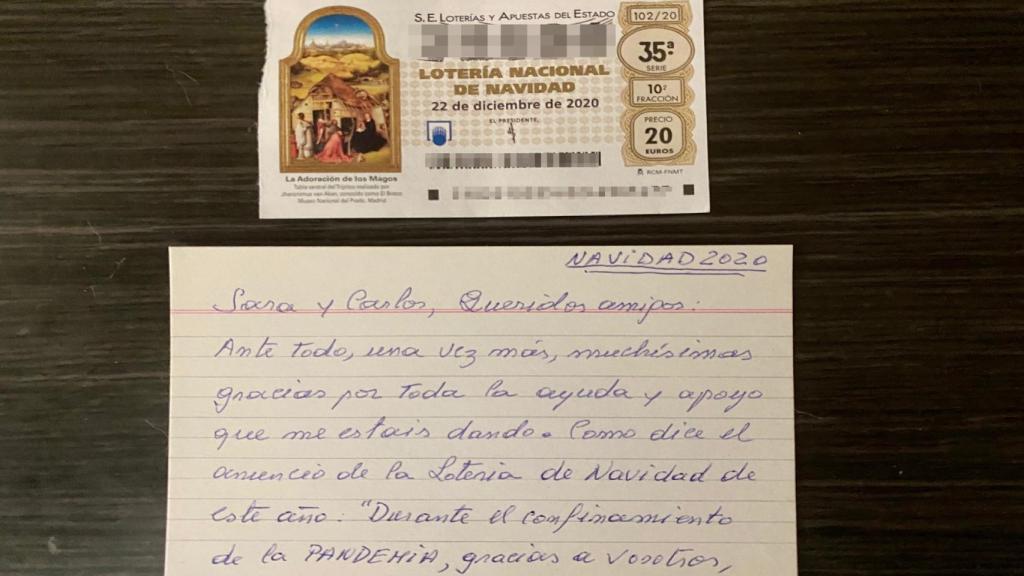 S.E. LOTERÍAS Y APUESTAS DEL ESTADO
LOTERÍA NACIONAL
DE NAVIDAD
22 de diciembre de 2020
EL PRESIDENTE,
102/20
35ª
SERIE
10ª
FRACCIÓN
PRECIO
20
EUROS
RCM-FNMT
La Adoración de los Magos
Tabla central del Tríptico realizado por
Jheronimus van Aken, conocido como El Bosco
Museo Nacional del Prado, Madrid
NAVIDAD 2020
Sara y Carlos, Queridos amigos:
Ante todo, una vez más, muchísimas
gracias por toda la ayuda y apoyo
que me estais dando. Como dice el
anuncio de la Loteria de Navidad de
este año: "Durante el confinamiento
de la PANDEMIA, gracias a vosotros,